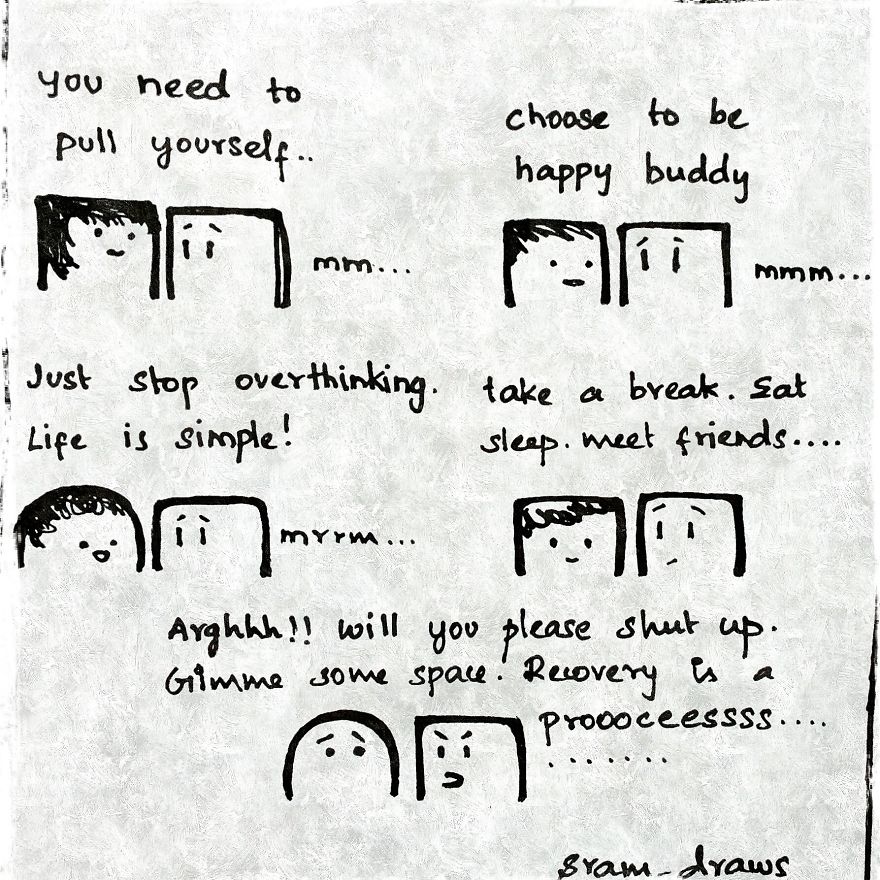 you need to
pull yourself..
mm...
choose to be
happy buddy
mmm...
Just stop overthinking.
Life is simple!
mrrm...
take a break. Eat
sleep. meet friends....
Arghhh!! will you please shut up.
Gimme some space. Recovery is a
proooceessss....
.......
sram_draws